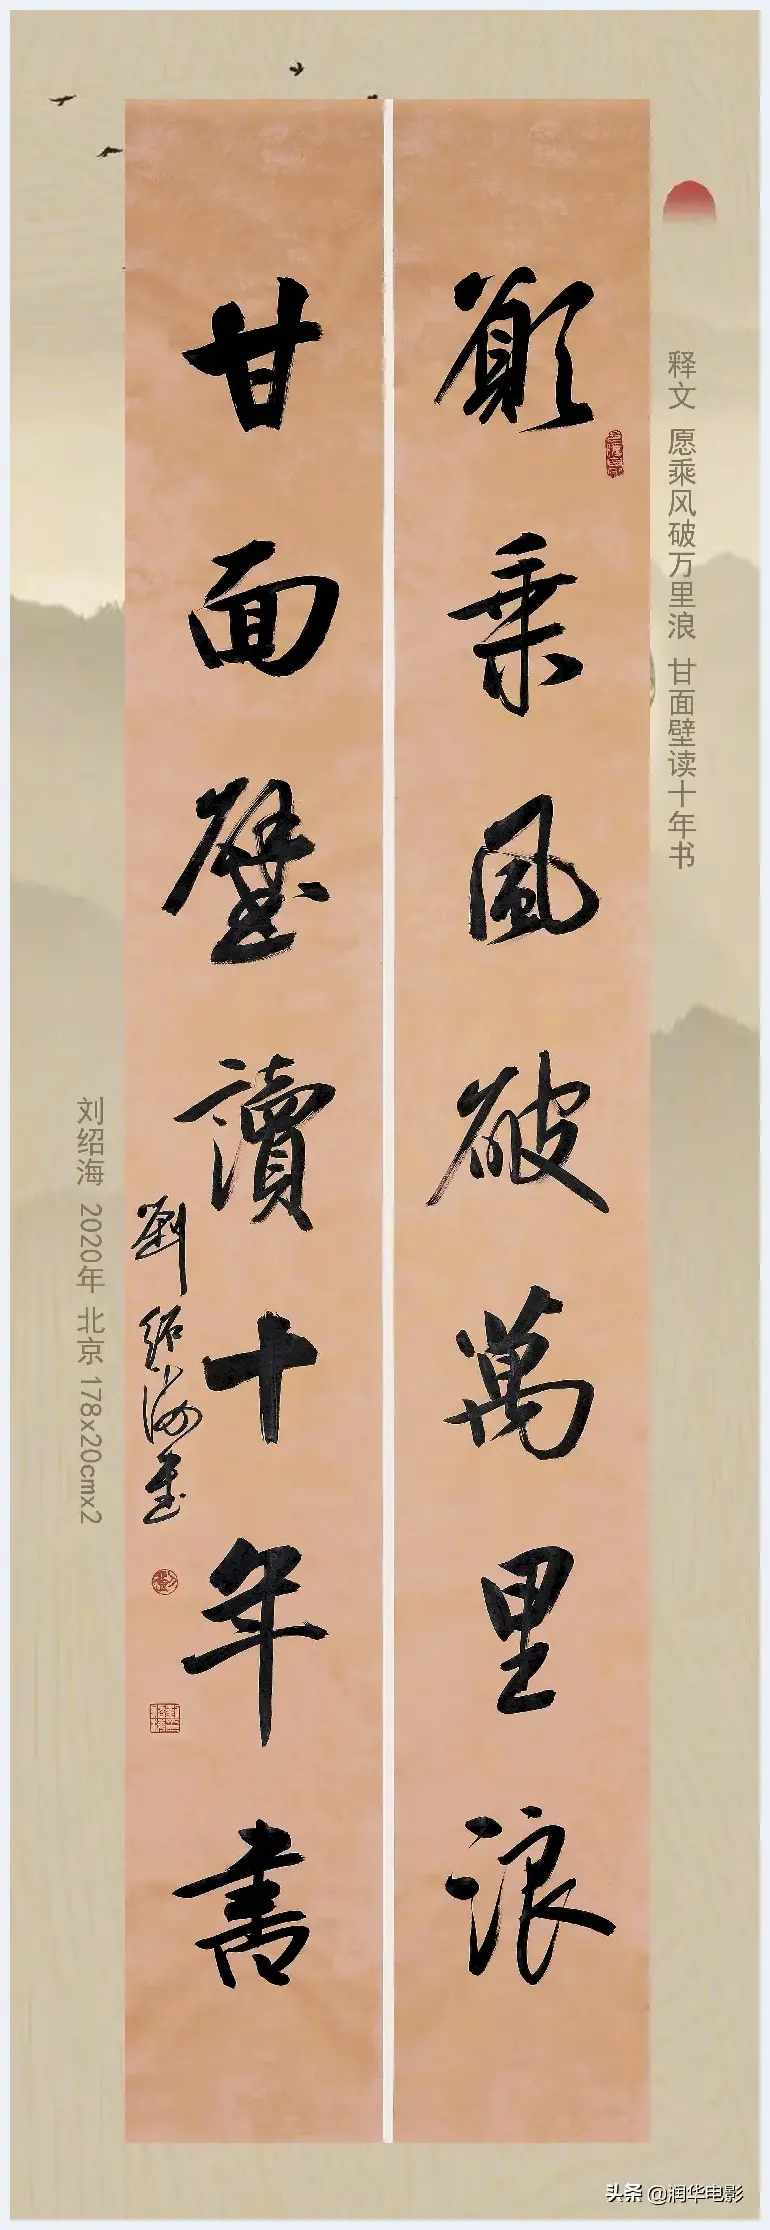 释文 愿乘风破万里浪 甘面壁读十年书
願乘風破萬里浪
甘面壁讀十年書
劉紹海書
刘绍海 2020年 北京 178x20cmx2
头条 @润华电影